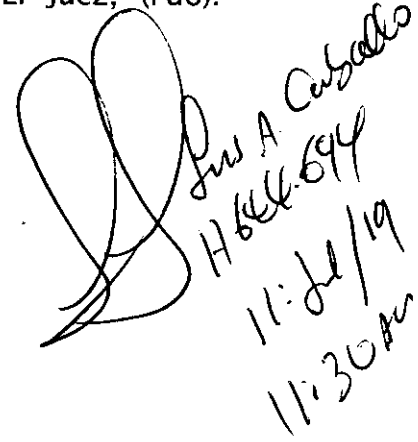 El Juez, (Fdo).
Luis A. Caballo
H644-694
11-Jul/19
11:30 AM